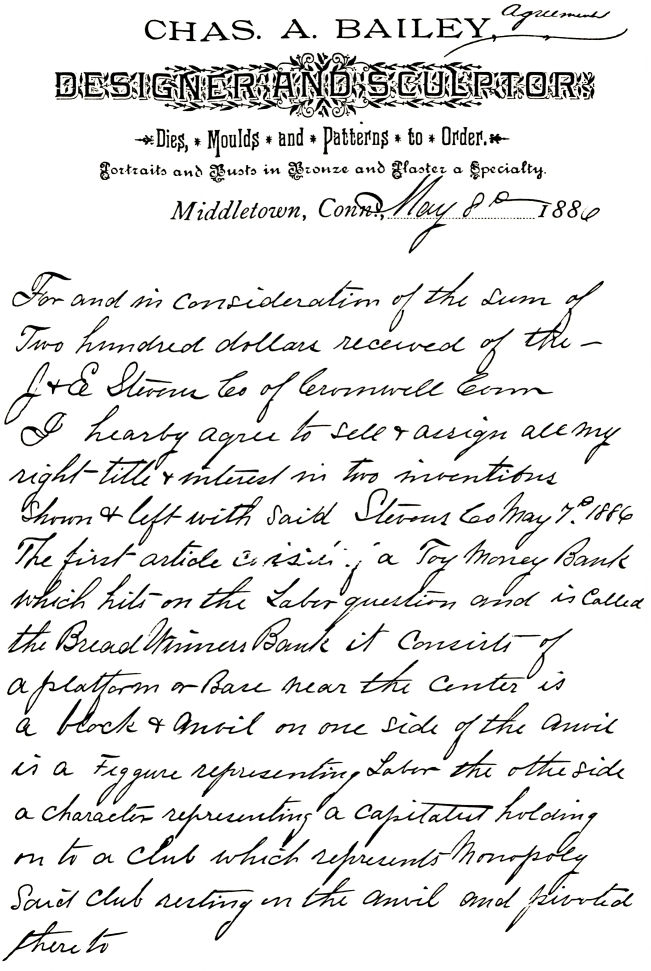 Agreement
CHAS. A. BAILEY,
DESIGNER AND SCULPTOR.
Dies, * Moulds * and * Patterns * to * Order.
Portraits and Busts in Bronze and Plaster a Specialty.
Middletown, Conn., May 8th 1886
For and in consideration of the sum of
Two hundred dollars received of the –
J & E Stevens Co of Cromwell Conn
I hearby agree to sell & assign all my
right title & interest in two inventions
shown & left with said Stevens Co May 7th 1886
The first article a Toy Money Bank
which hits on the Labor question and is called
the Bread Winners Bank it consists of
a platform or Base near the center is
a block & anvil on one side of the anvil
is a Figgure representing Labor the othe side
a character representing a capitalist holding
on to a club which represents Monopoly
Said club resting on the anvil and pivoted
thereto